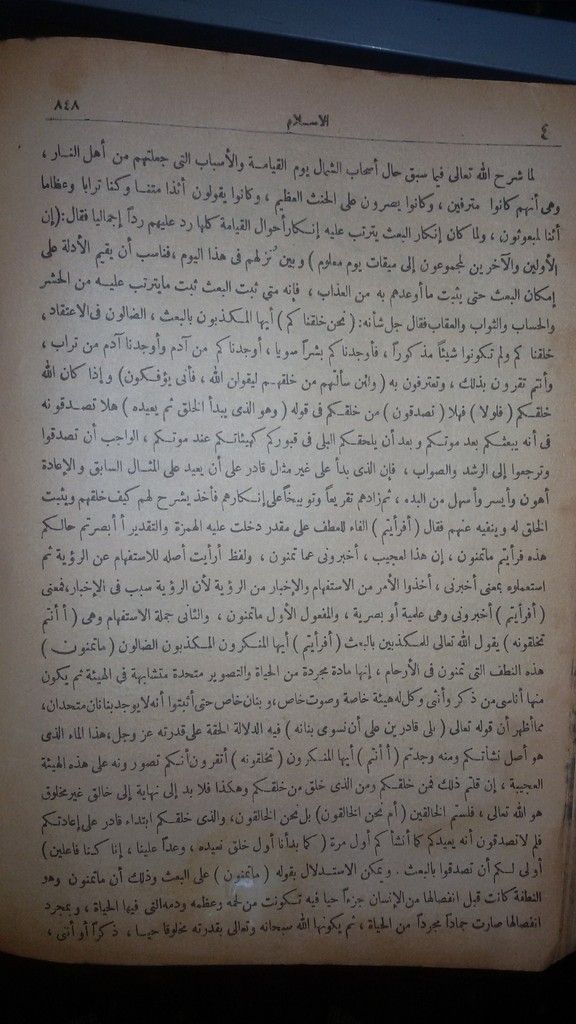 ٤
الاسلام
٨٤٨
لما شرح الله تعالى فيما سبق حال أصحاب الشمال يوم القيامة والأسباب التى جعلتهم من أهل النار ،
وهى أنهم كانوا مترفين ، وكانوا يصرون على الحنث العظيم ، وكانوا يقولون أئذا متنا وكنا ترابا وعظاما
أئنا لمبعوثون ، ولما كان إنكار البعث يترتب عليه إنكار أحوال القيامة كلها رد عليهم رداً إجماليا فقال:(إن
الأولين والآخرين لمجموعون إلى ميقات يوم معلوم ) وبين نزلهم فى هذا اليوم ،فناسب أن يقيم الأدلة على
إمكان البعث حتى يثبت ما أوعدهم به من العذاب ، فإنه متى ثبت البعث ثبت ما يترتب عليه من الحشر
والحساب والثواب والعقاب فقال جل شأنه: ( نحن خلقنا كم ) أيها المكذبون بالبعث ، الضالون فى الاعتقاد ،
خلقنا كم ولم تكونوا شيئاً مذكوراً ، فأوجدناكم بشراً سويا ، أوجدناكم من آدم وأوجدنا آدم من تراب ،
وأنتم تقرون بذلك ، وتعترفون به ( ولئن سألتهم من خلقهم ليقولن الله ، فأنى يؤفكون) و إذا كان الله
خلقكم ( فلولا ) فهلا ( تصدقون ) من خلقكم فى قوله ( وهو الذى يبدأ الخلق ثم يعيده ) هلا تصدقونه
فى أنه يبعثكم بعد موتكم و بعد أن يلحقكم البلى فى قبوركم كهيئاتكم عند موتكم ، الواجب أن تصدقوا
وترجعوا إلى الرشد والصواب ، فإن الذى بدأ على غير مثال قادر على أن يعيد على المثال السابق و الإعادة
أهون وأيسر وأسهل من البدء ، ثم زادهم تقريعاً وتوبيخاً على إنكارهم فأخذ يشرح لهم كيف خلقهم ويثبت
الخلق له وينفيه عنهم فقال ( أفرأيتم ) الفاء للعطف على مقدر دخلت عليه الهمزة والتقدير أ أبصرتم حالكم
هذه فرأيتم ماتمنون ، إن هذا لعجيب ، أخبرونى عما تمنون ، ولفظ أرأيت أصله للاستفهام عن الرؤية ثم
استعملوه بمعنى أخبرنى ، أخذوا الأمر من الاستفهام والإخبار من الرؤية لأن الرؤية سبب فى الإخبار،فمعنى
( أفرأيتم ) أخبرونى وهى علمية أو بصرية ، والمفعول الأول ماتمنون ، والثانى جملة الاستفهام وهى ( أ أنتم
تخلقونه ) يقول الله تعالى للمكذبين بالبعث ( أفرأيتم ) أيها المنكرون المكذبون الضالون ( ماتمنون )
هذه النطف التى تمنون فى الأرحام ، إنها مادة مجردة من الحياة والتصوير متحدة متشابهة فى الهيئة ثم يكون
منها أناسى من ذكر وأنثى وكل له هيئة خاصة وصوت خاص ،و بنان خاص حتى أثبتوا أنه لا يوجد بنانان متحدان،
مما أظهر أن قوله تعالى ( بلى قادرين على أن نسوى بنانه ) فيه الدلالة الحقة على قدرته عز وجل،هذا الماء الذى
هو أصل نشأتكم ومنه وجدتم ( أ أنتم ) أيها المنكرون ( تخلقونه ) أتقرون أنكم تصورونه على هذه الهيئة
العجيبة ، إن قلتم ذلك فمن خلقكم ومن الذى خلق من خلقكم وهكذا فلا بد إلى نهاية إلى خالق غير مخلوق
هو الله تعالى ، فلستم الخالقين ( أم نحن الخالقون) بل نحن الخالقون، والذى خلقكم ابتداء قادر على إعادتكم
فلم لا تصدقون أنه يعيدكم كما أنشأ كم أول مرة ( كما بدأنا أول خلق نعيده ، وعداً علينا ، إنا كنا فاعلين )
أولى لكم أن تصدقوا بالبعث . ويمكن الاستدلال بقوله ( ماتمنون ) على البعث وذلك أن ماتمنون وهو
النطفة كانت قبل انفصالها من الإنسان جزءاً حيا فيه تكونت من لحمه وعظمه ودمه التى فيها الحياة ، وبمجرد
انفصالها صارت جماداً مجرداً من الحياة ، ثم يكونها الله سبحانه وتعالى بقدرته مخلوقا حيا ، ذكراً أو أنثى ،